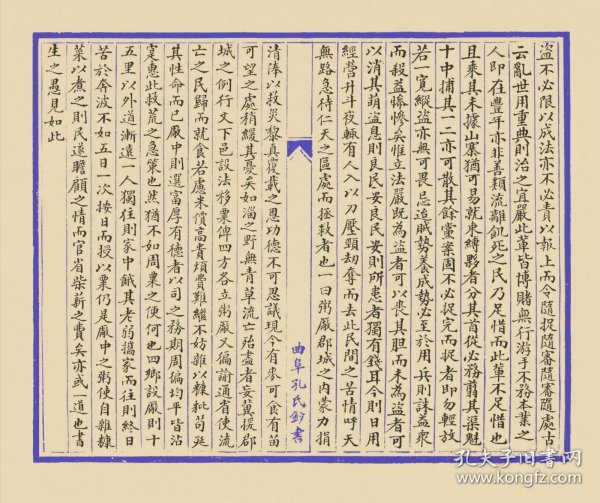 盜不必限以成法亦不必責以報上而令隨捉隨審隨審隨處古
云亂世用重典則治之宜嚴此輩皆博賭無行游手不務本業之
人即在豐年亦非善類流離飢死之民乃足惜而此輩不足惜也
且乘其未據山寨猶可易就束縛夥者分其首從必務翦其渠魁
十中捕其一二亦可散其餘黨案固不必捉完而捉者即勿輕放
若一寬縱盜亦無可畏忌迨賊勢養成勢必至於用兵則誅益眾
而殺益慘慘矣惟立法嚴既為盜者可以喪其胆而未為盜者可
以消其萌盜息則良民安良民安則所患者獨有錢耳今則日用
經營升斗夜輙有人入以刀壓頸刼奪而去此民間之苦情呼天
無路急待仁天之區處而拯救者也一曰粥厰郡城之内蒙力捐
清俸以救災黎真覆載之恩功德不可思議現今有麥可食有苗
可望之處稍緩其憂矣如溜之野無青草流亡殆盡者妄冀援郡
城之例行文下邑設法移粟俾四方各立粥厰又徧諭通省使流
亡之民歸而就食若慮米價高貴煩費難繼不妨雜以糠粃苟延
其性命而已厰中則選富厚有德者以司之務期周徧均平皆沾
寔惠此救荒之急策也然猶不如周粟之便何也四鄉設厰則十
五里以外道漸遠一人獨往則家中餓其老弱攜家而往則終日
苦於奔波不如五日一次按日而授以粟仍是厰中之粥使自雜糠
菜以煮之則民遂瞻顧之情而官省柴薪之費矣亦或一道也書
生之愚見如此
曲阜孔氏鈔書
孔夫子旧书网